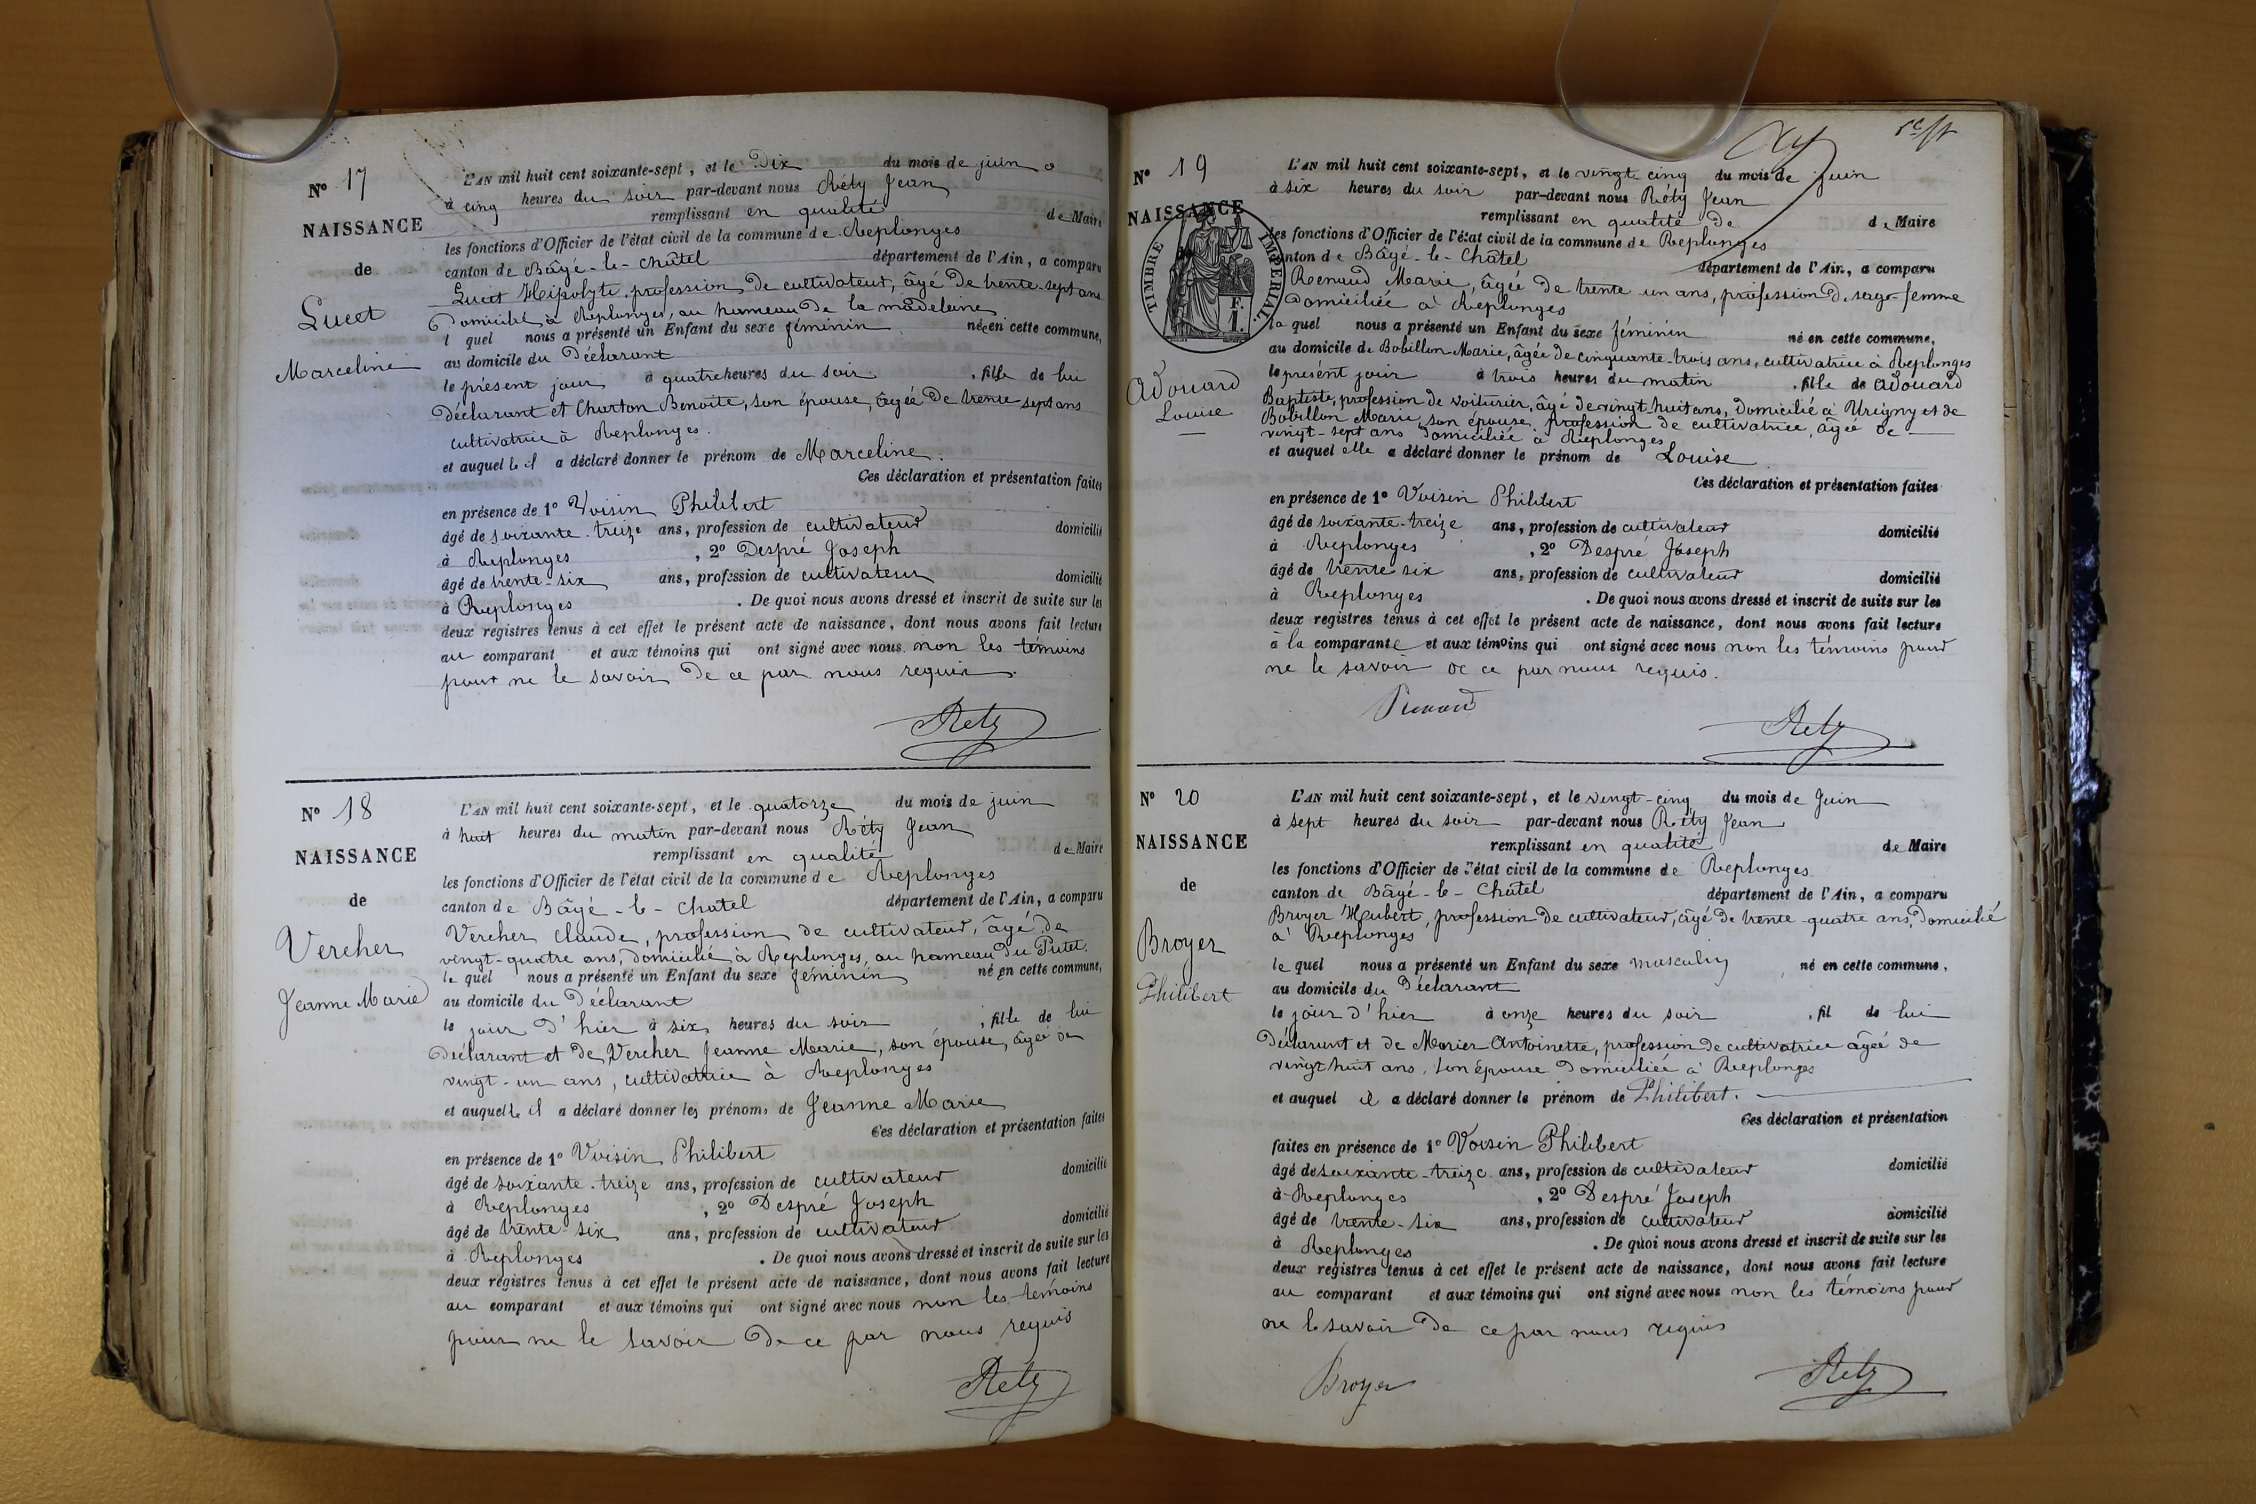 Nº 17
NAISSANCE
de
Lucet
Marceline
L'AN mil huit cent soixante-sept, et le Dix du mois de juin
à cinq heures du soir par-devant nous Réty Jean
remplissant en qualité de Maire
les fonctions d'Officier de l'état civil de la commune de Replonges
canton de Bâgé-le-Châtel département de l'Ain, a comparu
Lucet Hipolyte profession De cultivateur, âgé De trente-sept ans
Domicilié à Replonges, au hameau De la madeleine
l quel nous a présenté un Enfant du sexe féminin née en cette commune,
au domicile du Déclarant
le présent jour à quatre heures du soir, fille de lui
Déclarant et Charton Benoite, son épouse, âgée De trente sept ans
cultivatrice à Replonges.
et auquelle il a déclaré donner le prénom de Marceline.
Ces déclaration et présentation faites
en présence de 1º Voisin Philibert
âgé de soixante-treize ans, profession de cultivateur domicilié
à Replonges, 2º Despré Joseph
âgé de trente-six ans, profession de cultivateur domicilié
à Replonges. De quoi nous avons dressé et inscrit de suite sur les
deux registres tenus à cet effet le présent acte de naissance, dont nous avons fait lecture
au comparant et aux témoins qui ont signé avec nous non les témoins
pour ne le savoir De ce par nous requis.
Réty
Nº 18
NAISSANCE
de
Vercher
Jeanne Marie
L'AN mil huit cent soixante-sept, et le quatorze du mois de juin
à huit heures du matin par-devant nous Réty Jean
remplissant en qualité de Maire
les fonctions d'Officier de l'état civil de la commune de Replonges
canton de Bâgé-le-Chatel département de l'Ain, a comparu
Vercher Claude, profession de cultivateur, âgé de
vingt-quatre ans, domicilié à Replonges, au hameau du Putet.
le quel nous a présenté un Enfant du sexe féminin né en cette commune,
au domicile du Déclarant
le jour d'hier à six heures du soir, fille de lui
Déclarant et de Vercher Jeanne Marie, son épouse, âgée de
vingt-un ans, cultivatrice à Replonges
et auquelle il a déclaré donner les prénoms de Jeanne Marie
Ces déclaration et présentation faites
en présence de 1º Voisin Philibert
âgé de soixante-treize ans, profession de cultivateur domicilié
à Replonges, 2º Despré Joseph
âgé de trente-six ans, profession de cultivateur domicilié
à Replonges. De quoi nous avons dressé et inscrit de suite sur les
deux registres tenus à cet effet le présent acte de naissance, dont nous avons fait lecture
au comparant et aux témoins qui ont signé avec nous non les témoins
pour ne le savoir De ce par nous requis
Réty
Nº 19
NAISSANCE
TIMBRE IMPERIAL
F.
1.
Adouard
Louise
L'AN mil huit cent soixante-sept, et le vingt cinq du mois de juin
à six heures du soir par-devant nous Réty Jean
remplissant en qualité de de Maire
les fonctions d'Officier de l'état civil de la commune de Replonges
canton de Bâgé-le-Châtel département de l'Ain, a comparu
Renaud Marie, âgée de trente un ans, profession De sage-femme
Domiciliée à Replonges
la quel nous a présenté un Enfant du sexe féminin né en cette commune,
au domicile de Bobillon Marie, âgée de cinquante-trois ans, cultivatrice à Replonges
le présent jour à trois heures du matin, fille de Adouard
Baptiste, profession de voiturier, âgé de vingt huit ans, Domicilié à Urigny et de
Bobillon Marie son épouse profession de cultivatrice, âgée de
vingt-sept ans domiciliée à Replonges
et auquel elle a déclaré donner le prénom de Louise
Ces déclaration et présentation faites
en présence de 1º Voisin Philibert
âgé de soixante-treize ans, profession de cultivateur domicilié
à Replonges, 2º Despré Joseph
âgé de trente six ans, profession de cultivateur domicilié
à Replonges. De quoi nous avons dressé et inscrit de suite sur les
deux registres tenus à cet effet le présent acte de naissance, dont nous avons fait lecture
à la comparante et aux témoins qui ont signé avec nous non les témoins pour
ne le savoir de ce par nous requis.
Réty
Nº 20
NAISSANCE
de
Broyer
Philibert
L'AN mil huit cent soixante-sept, et le vingt-cinq du mois de Juin
à sept heures du soir par-devant nous Réty Jean
remplissant en qualité de Maire
les fonctions d'Officier de l'état civil de la commune de Replonges
canton de Bâgé-le-Châtel département de l'Ain, a comparu
Broyer Hubert, profession De cultivateur, âgé De trente-quatre ans, Domicilié
à Replonges
le quel nous a présenté un Enfant du sexe masculin, né en cette commune,
au domicile du Déclarant
le jour d'hier à onze heures du soir, fil de lui
Déclarant et de Morier Antoinette, profession de cultivatrice âgée de
vingt huit ans, son épouse Domiciliée à Replonges
et auquel il a déclaré donner le prénom de Philibert.
Ces déclaration et présentation
faites en présence de 1º Voisin Philibert
âgé de soixante-treize ans, profession de cultivateur domicilié
à Replonges, 2º Despré Joseph
âgé de trente-six ans, profession de cultivateur domicilié
à Replonges. De quoi nous avons dressé et inscrit de suite sur les
deux registres tenus à cet effet le présent acte de naissance, dont nous avons fait lecture
au comparant et aux témoins qui ont signé avec nous non les témoins pour
ne le savoir De ce par nous requis
Broyer Réty